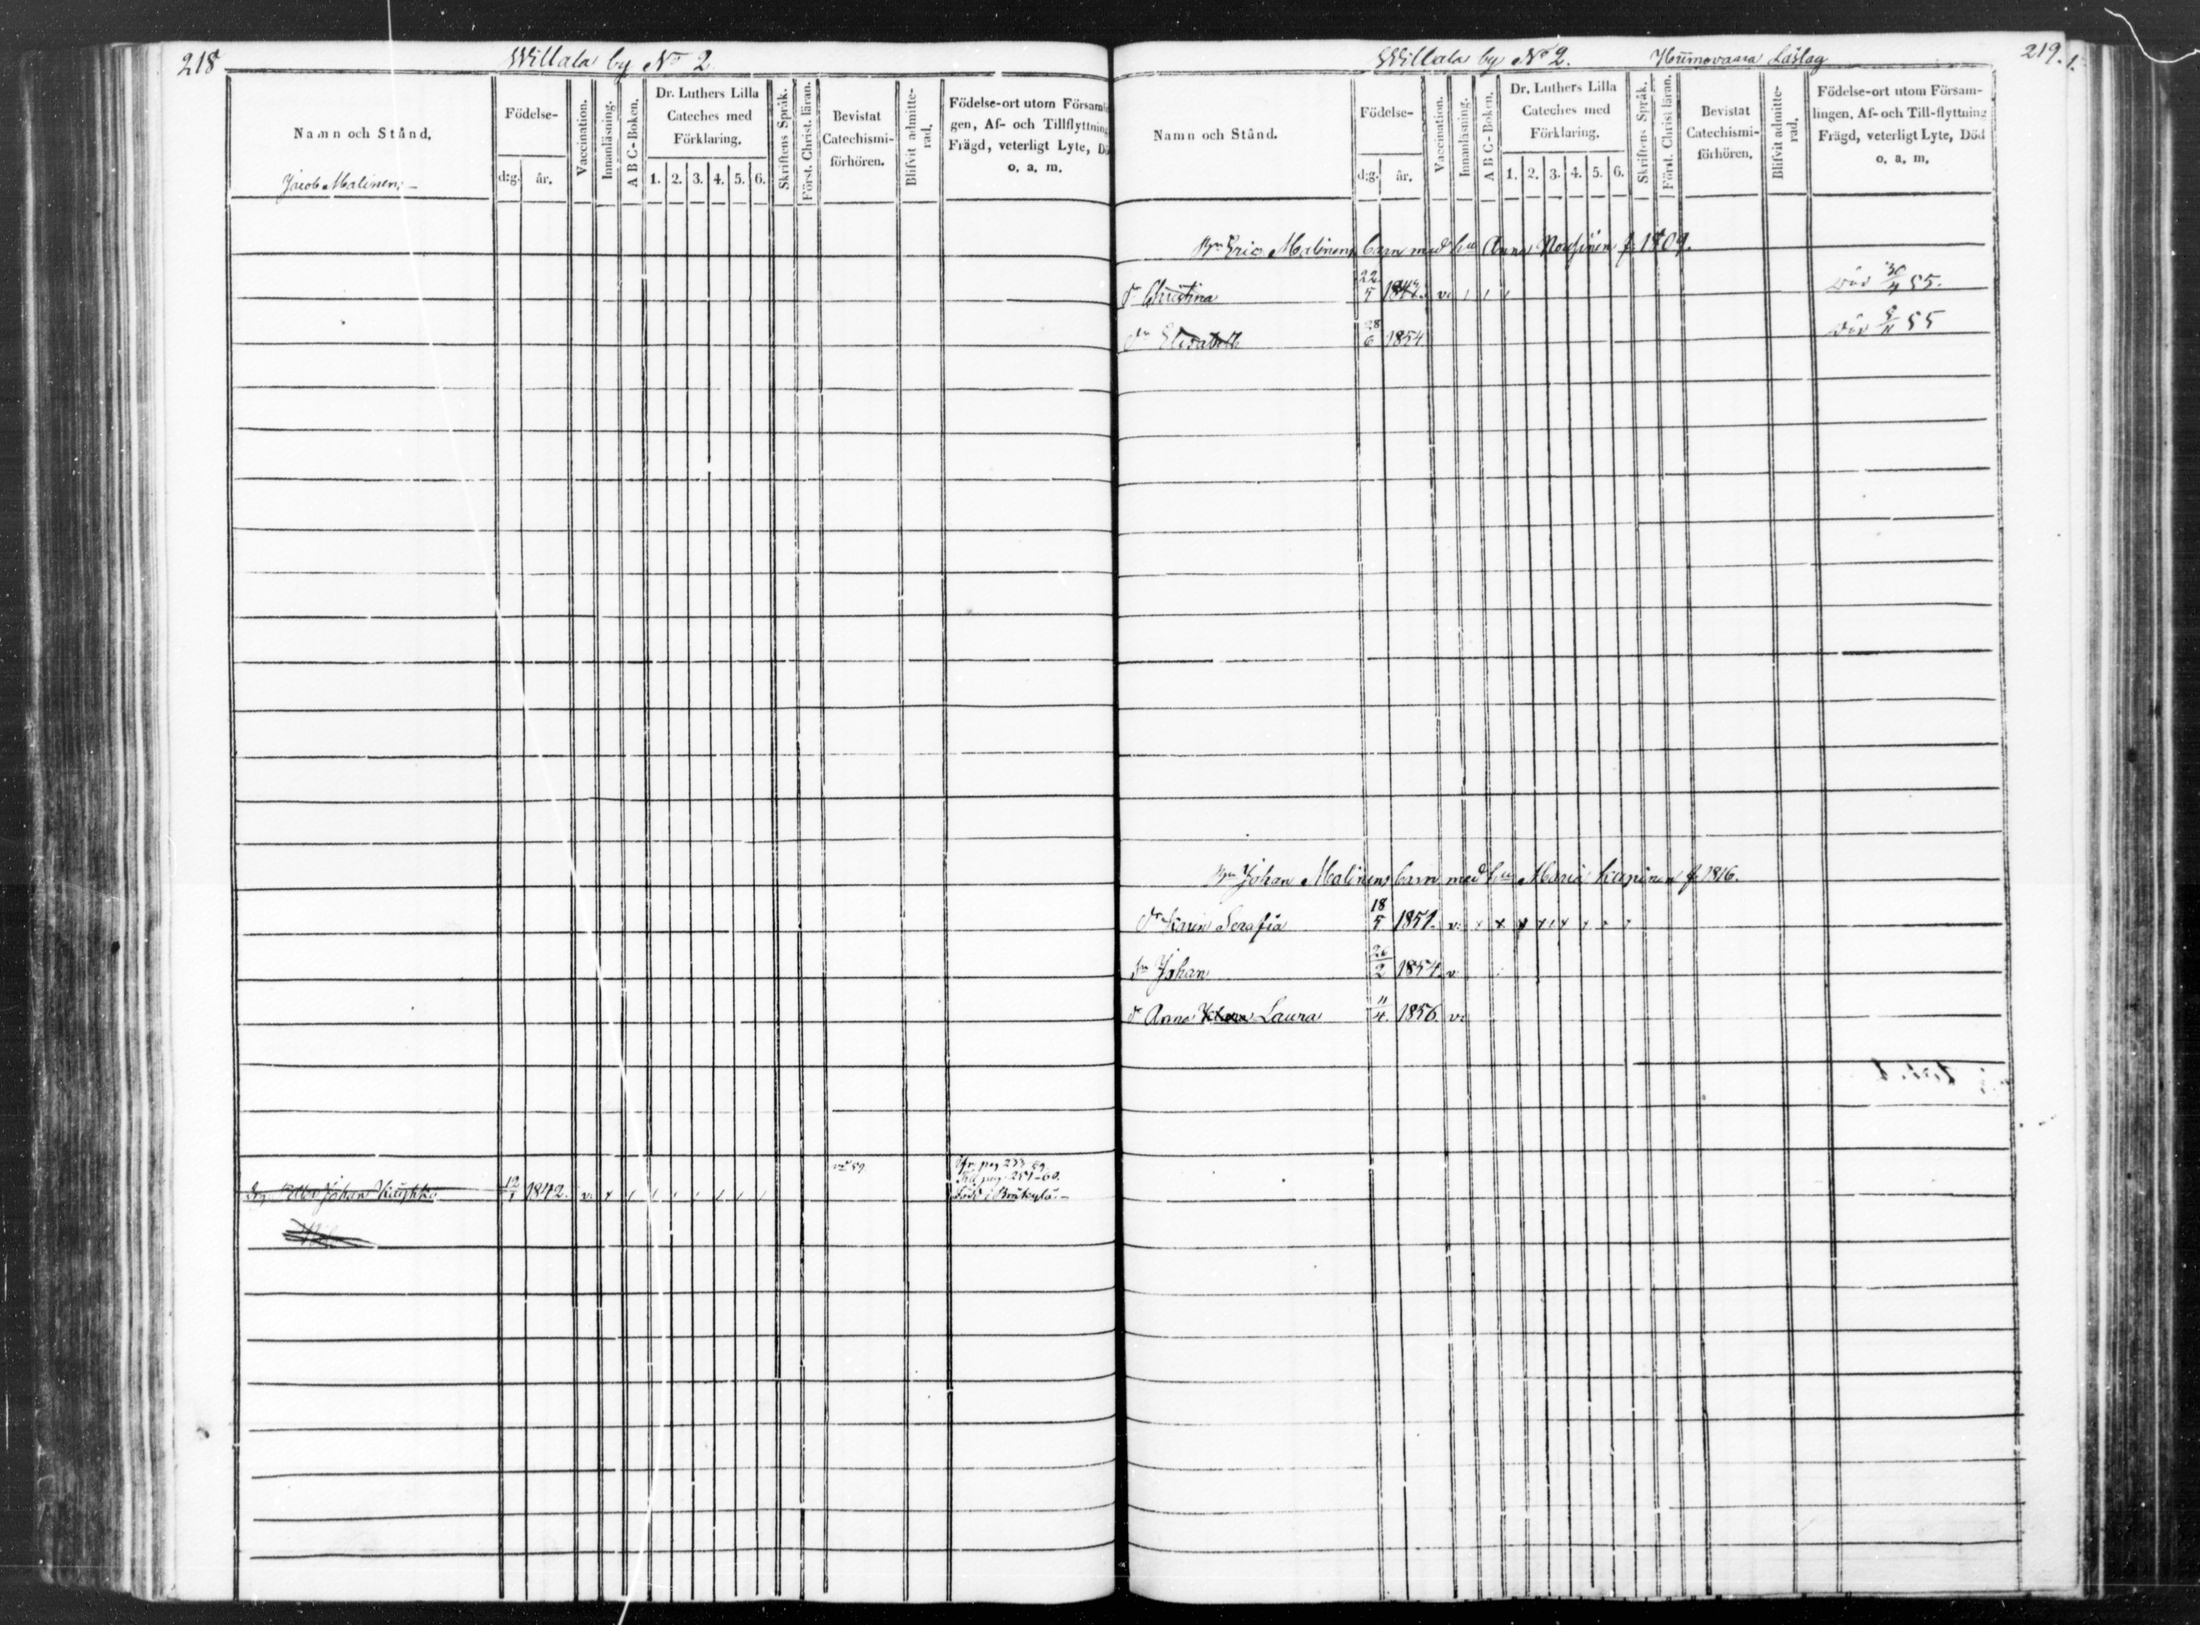 218
Willala by No 2
Namn och Stånd.
Jacob Malinen
Födelse-
d:g.
år.
Vaccination.
Innanläsning.
A B C-Boken.
Dr. Luthers Lilla
Cateches med
Förklaring.
1. 2. 3. 4. 5. 6.
Skriftens Språk.
Först. Christ. läran.
Bevistat
Catechismi-
förhören.
Blifvit admitte-
rad.
Födelse-ort utom Församl
gen, Af- och Tillflyttning
Frägd, veterligt Lyte, Dö
o. a. m.
Johan 12 1842. v.
59
Född i
Willala by No 2. Läslag
219.
Namn och Stånd.
Födelse-
d:g.
år.
Vaccination.
Innanläsning.
A B C-Boken.
Dr. Luthers Lilla
Cateches med
Förklaring.
1. 2. 3. 4. 5. 6.
Skriftens Språk.
Först. Christ läran.
Bevistat
Catechismi-
förhören.
Blifvit admitte-
rad.
Födelse-ort utom Försam-
lingen, Af- och Till-flyttning
Frägd, veterligt Lyte, Död
o. a. m.
Eric Malinens barn med hu Anna f. 1809.
dr Christina 22/5 v. Död 30/4 55.
dr Elisabeth 28/6 1854 Död 55
Johan Malinens barn med hu Maria f. 1816.
dr Karin Serafia 18/5 1851. v.
sn Johan 26/2 1854. v.
dr Anna Laura 11/4. 1856. v.